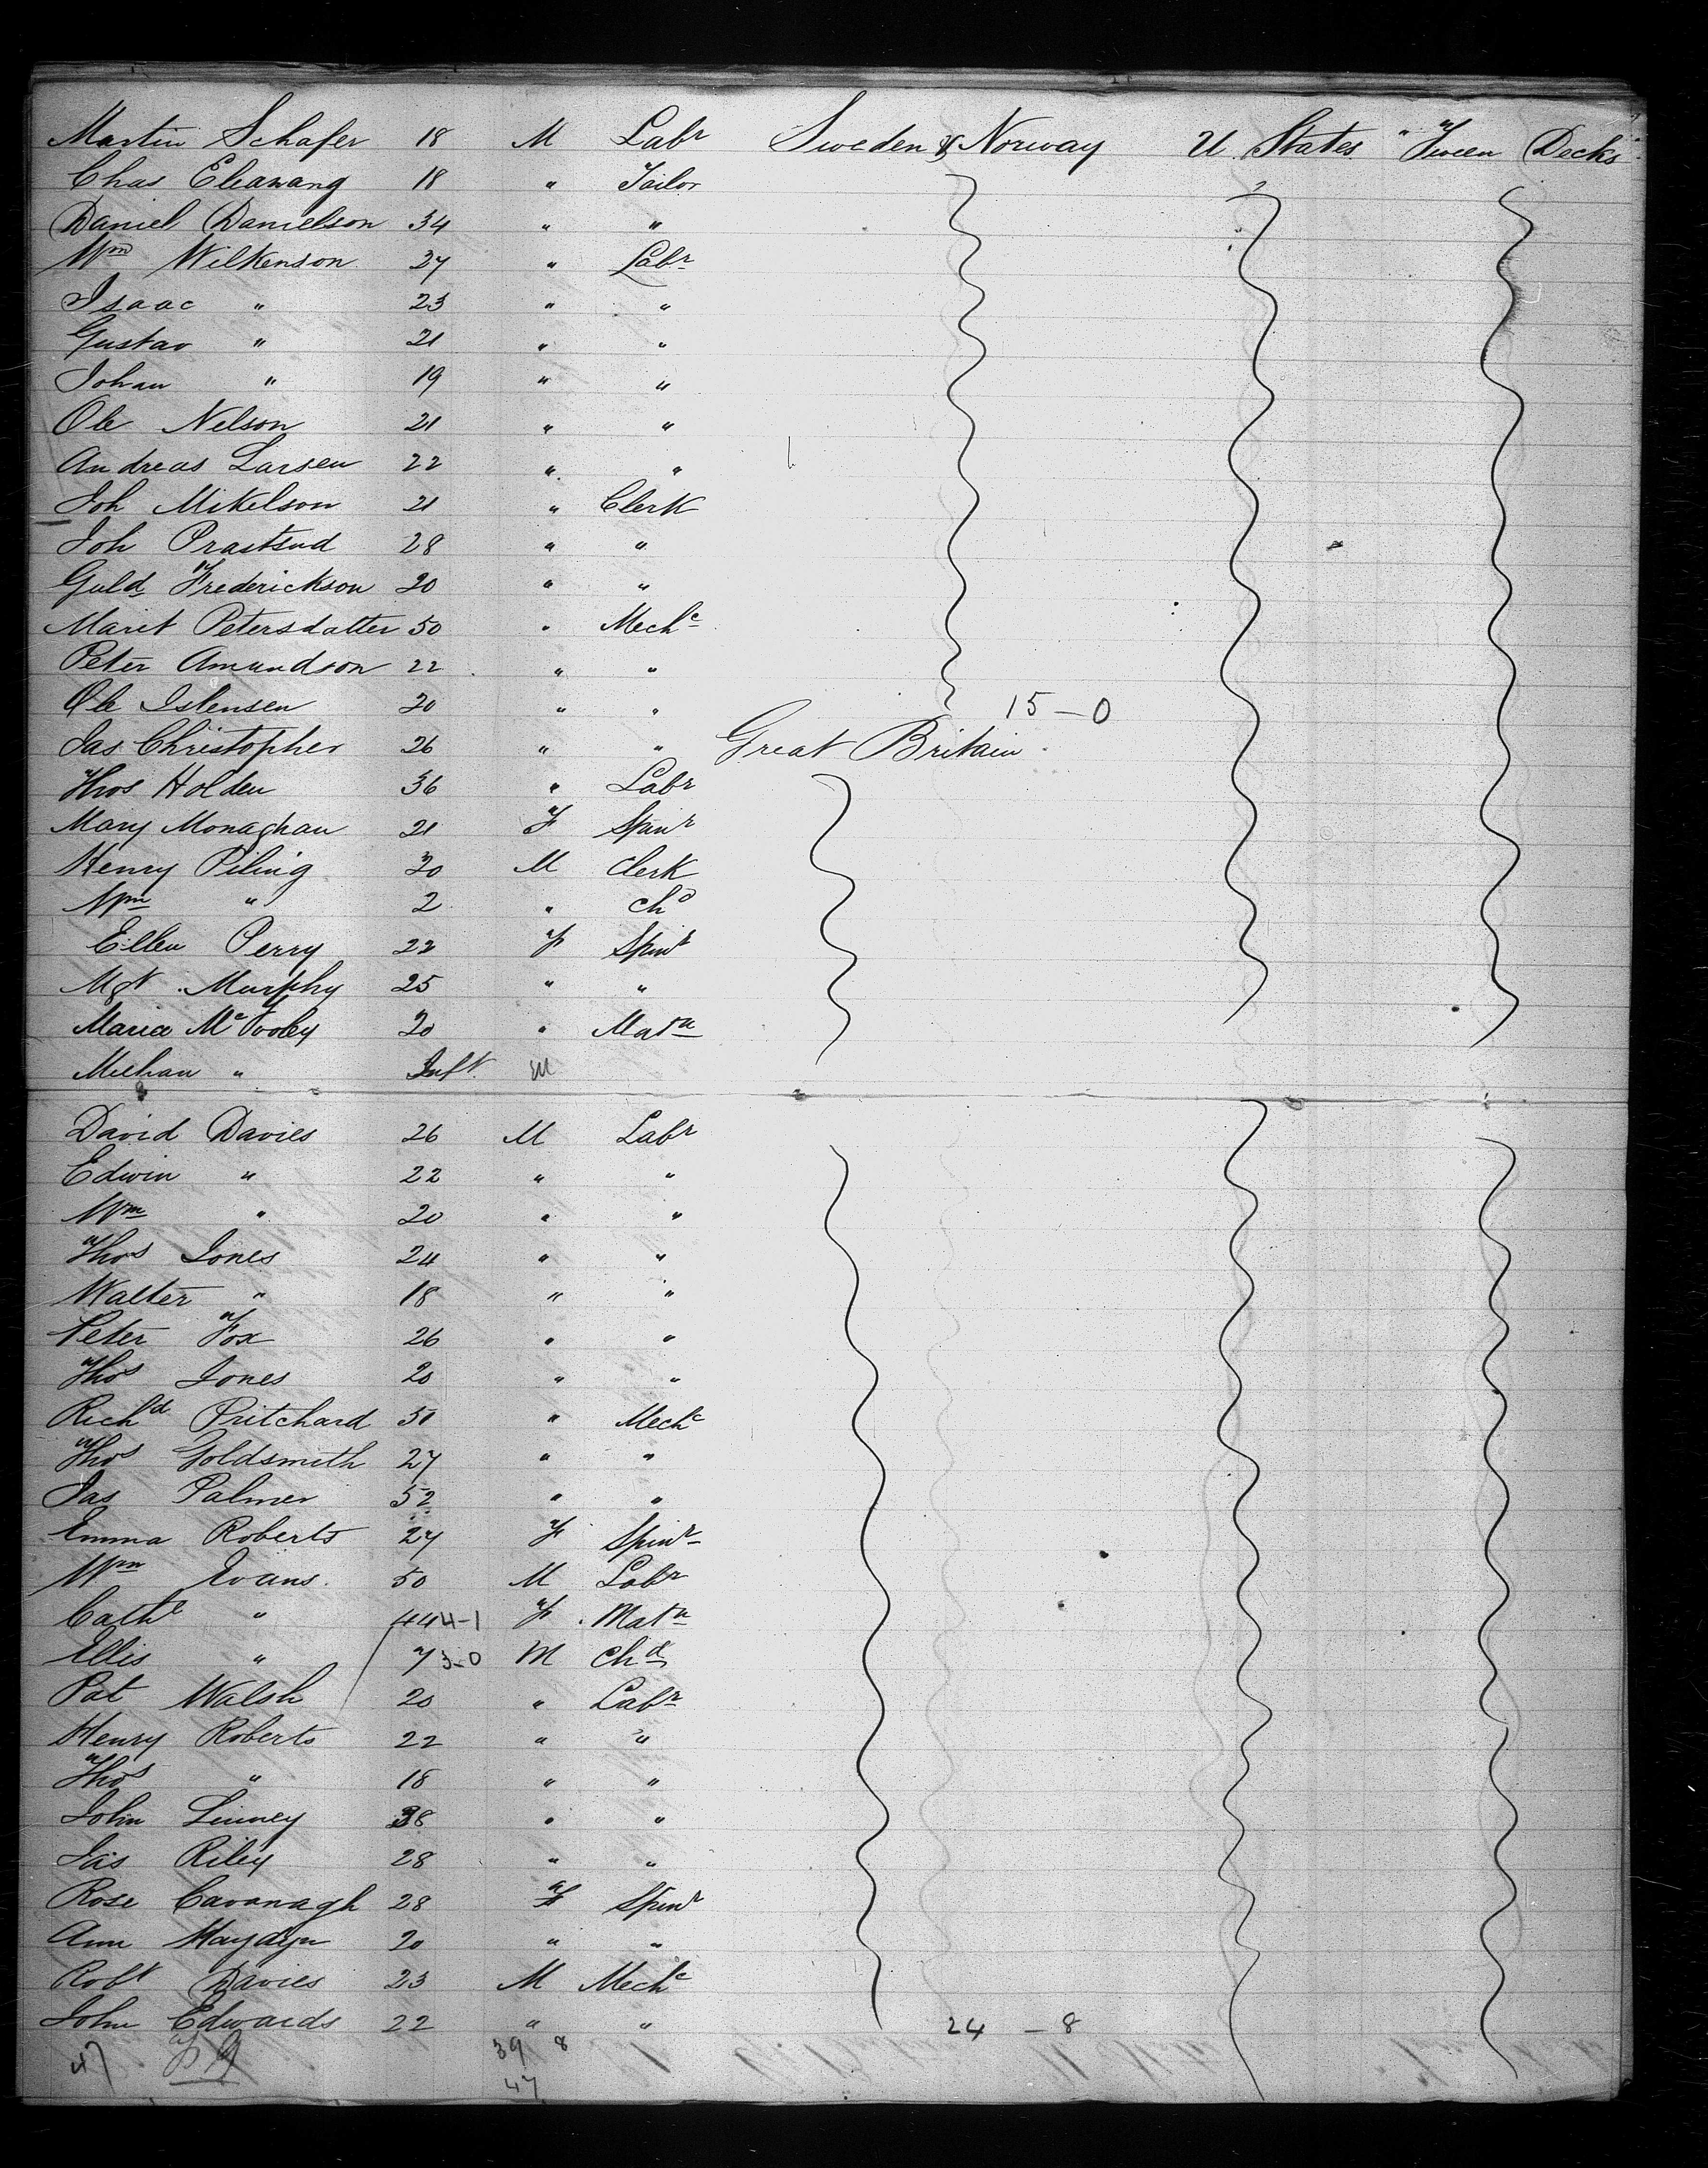 Martin Schafer 18 M Labr Sweden & Norway U. States "Tween Decks"
Chas Eleawang 18 " Tailor
Daniel Danielson 34 " "
Wm Wilkenson 27 " Labr
Isaac " 23 " "
Gustav " 21 " "
Johan " 19 " "
Ole Nelson 21 " "
Andreas Larsen 22 " "
Joh Mikelson 21 " Clerk
Joh Prastsud 28 " "
Guld Frederickson 20 " "
Marit Petersdatter 50 " Mechc
Peter Amundson 22 " "
Ole Islensen 20 " " 15-0
Jas Christopher 26 " " Great Britain
Thos Holden 36 " Labr
Mary Monaghan 21 F Spinr
Henry Piling 20 M Clerk
Wm " 2 " chd
Ellen Perry 22 F Spinr
Mgt Murphy 25 " "
Maria Mc 20 " Matn
" Inft M
David Davies 26 M Labr
Edwin " 22 " "
Wm " 20 " "
Thos Jones 24 " "
Walter " 18 " "
Peter Fox 26 " "
Thos Jones 20 " "
Richd Pritchard 51 " Mechc
Thos Goldsmith 27 " "
Jas Palmer 52 " "
Emma Roberts 27 F Spinr
Wm Evans 50 M Labr
Cathe " 44 4-1 F Matn
Ellis " 7 3-0 M Chd
Pat Walsh 20 " Labr
Henry Roberts 22 " "
Thos " 18 " "
John Linney 38 " "
Jas Riley 28 " "
Rose Cavanagh 28 F Spinr
Ann Haydyn 20 " "
Robt Davies 23 M Mechc
John Edwards 22 " " 24 - 8
47 39 8
47